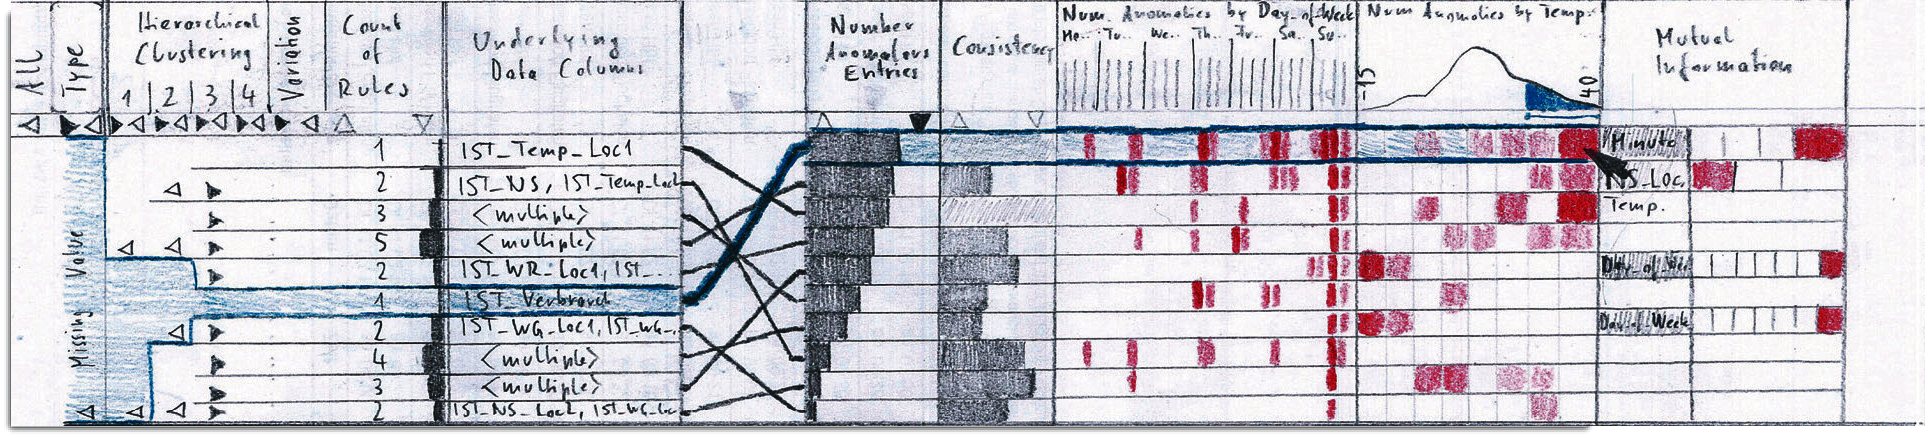 All
Type
Hierarchical
Clustering
1 | 2 | 3 | 4
Variation
Count
of
Rules
Underlying
Data Columns
Number
Anomalous
Entries
Consistency
Num. Anomalies by Day_of_Week
Mo.. Tu.. We.. Th.. Fr.. Sa.. Su..
Num Anomalies by Temp.
-15
40
Mutual
Information
Missing Value
1 IST_Temp_Loc1
2 IST_NS, IST_Temp_Loc1
3 <multiple>
5 <multiple>
2 IST_WR_Loc1, IST_...
1 IST_Verbrauch
2 IST_WG_Loc1, IST_WG_.
4 <multiple>
3 <multiple>
2 IST_NS_Loc2, IST_WG_Lo
Minute
NS_Loc.
Temp.
Day_of_Wee
Day_of_Week